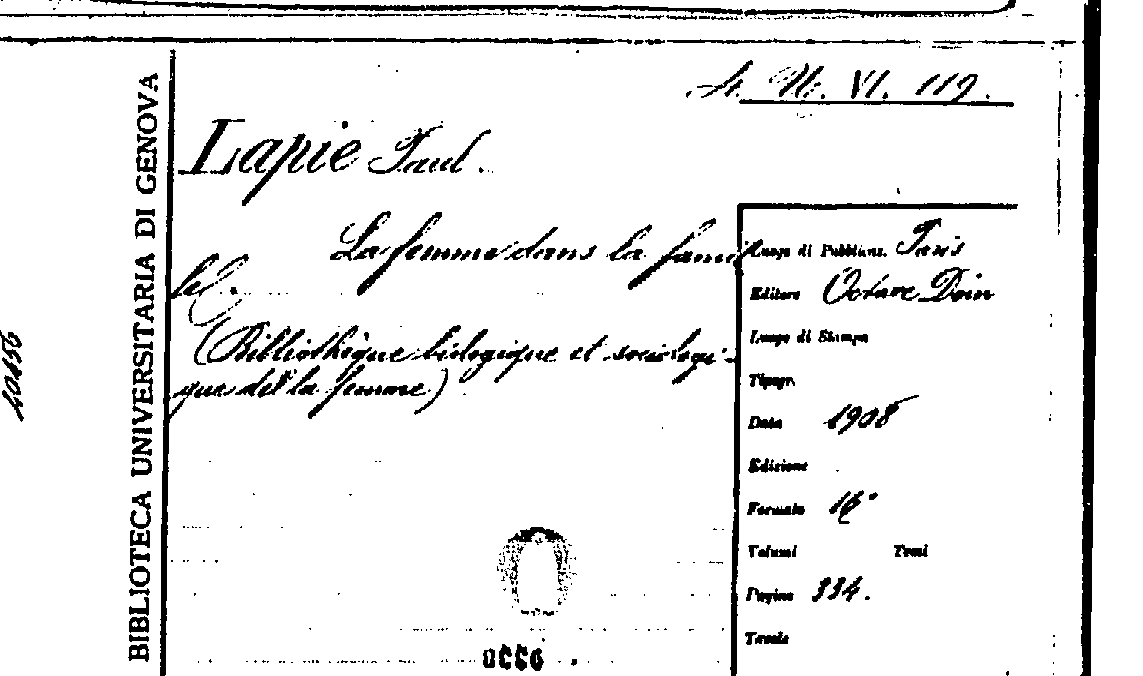 4. N. VI. 119.
BIBLIOTECA UNIVERSITARIA DI GENOVA
Lapie Paul.
La femme dans la famil
le).
(Bibliothèque biologique et sociologi-
que de la femme)
Luogo di Pubblicaz. Paris
Editore Octave Doin
Luogo di Stampa
Tipogr.
Data 1908
Edizione
Formato 16°
Volumi Tomi
Pagine 334.
Tavole